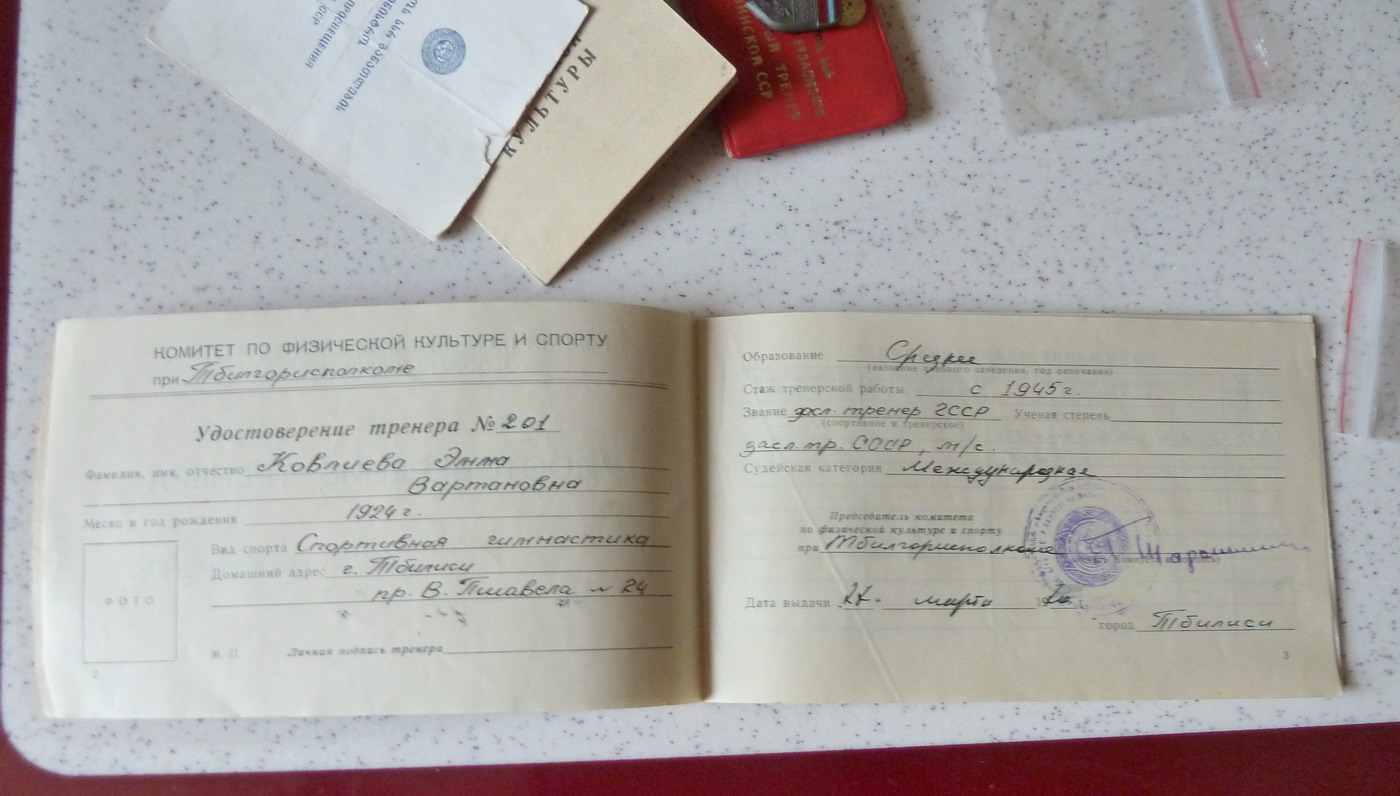 ПРОСВЕЩЕНИЯ
ССР
КУЛЬТУРЫ
ТРЕНЕР
ИНСКОЙ ССР
КОМИТЕТ ПО ФИЗИЧЕСКОЙ КУЛЬТУРЕ И СПОРТУ
при Тбилгорисполкоме
Удостоверение тренера № 201
Фамилия, имя, отчество Ковлиева Эмма
Вартановна
Месяц и год рождения 1924 г.
Вид спорта Спортивная гимнастика
Домашний адрес г. Тбилиси
пр. В. Пшавела № 24
ФОТО
М. П. Личная подпись тренера
2
Образование Среднее
(название учебного заведения, год окончания)
Стаж тренерской работы с 1945 г.
Звание засл. тренер ГССР Ученая степень
(спортивное и тренерское)
засл. тр. СССР, м/с.
Судейская категория Международная
Председатель комитета
по физической культуре и спорту
при Тбилгорисполкоме
Дата выдачи 27. марта
город Тбилиси
3